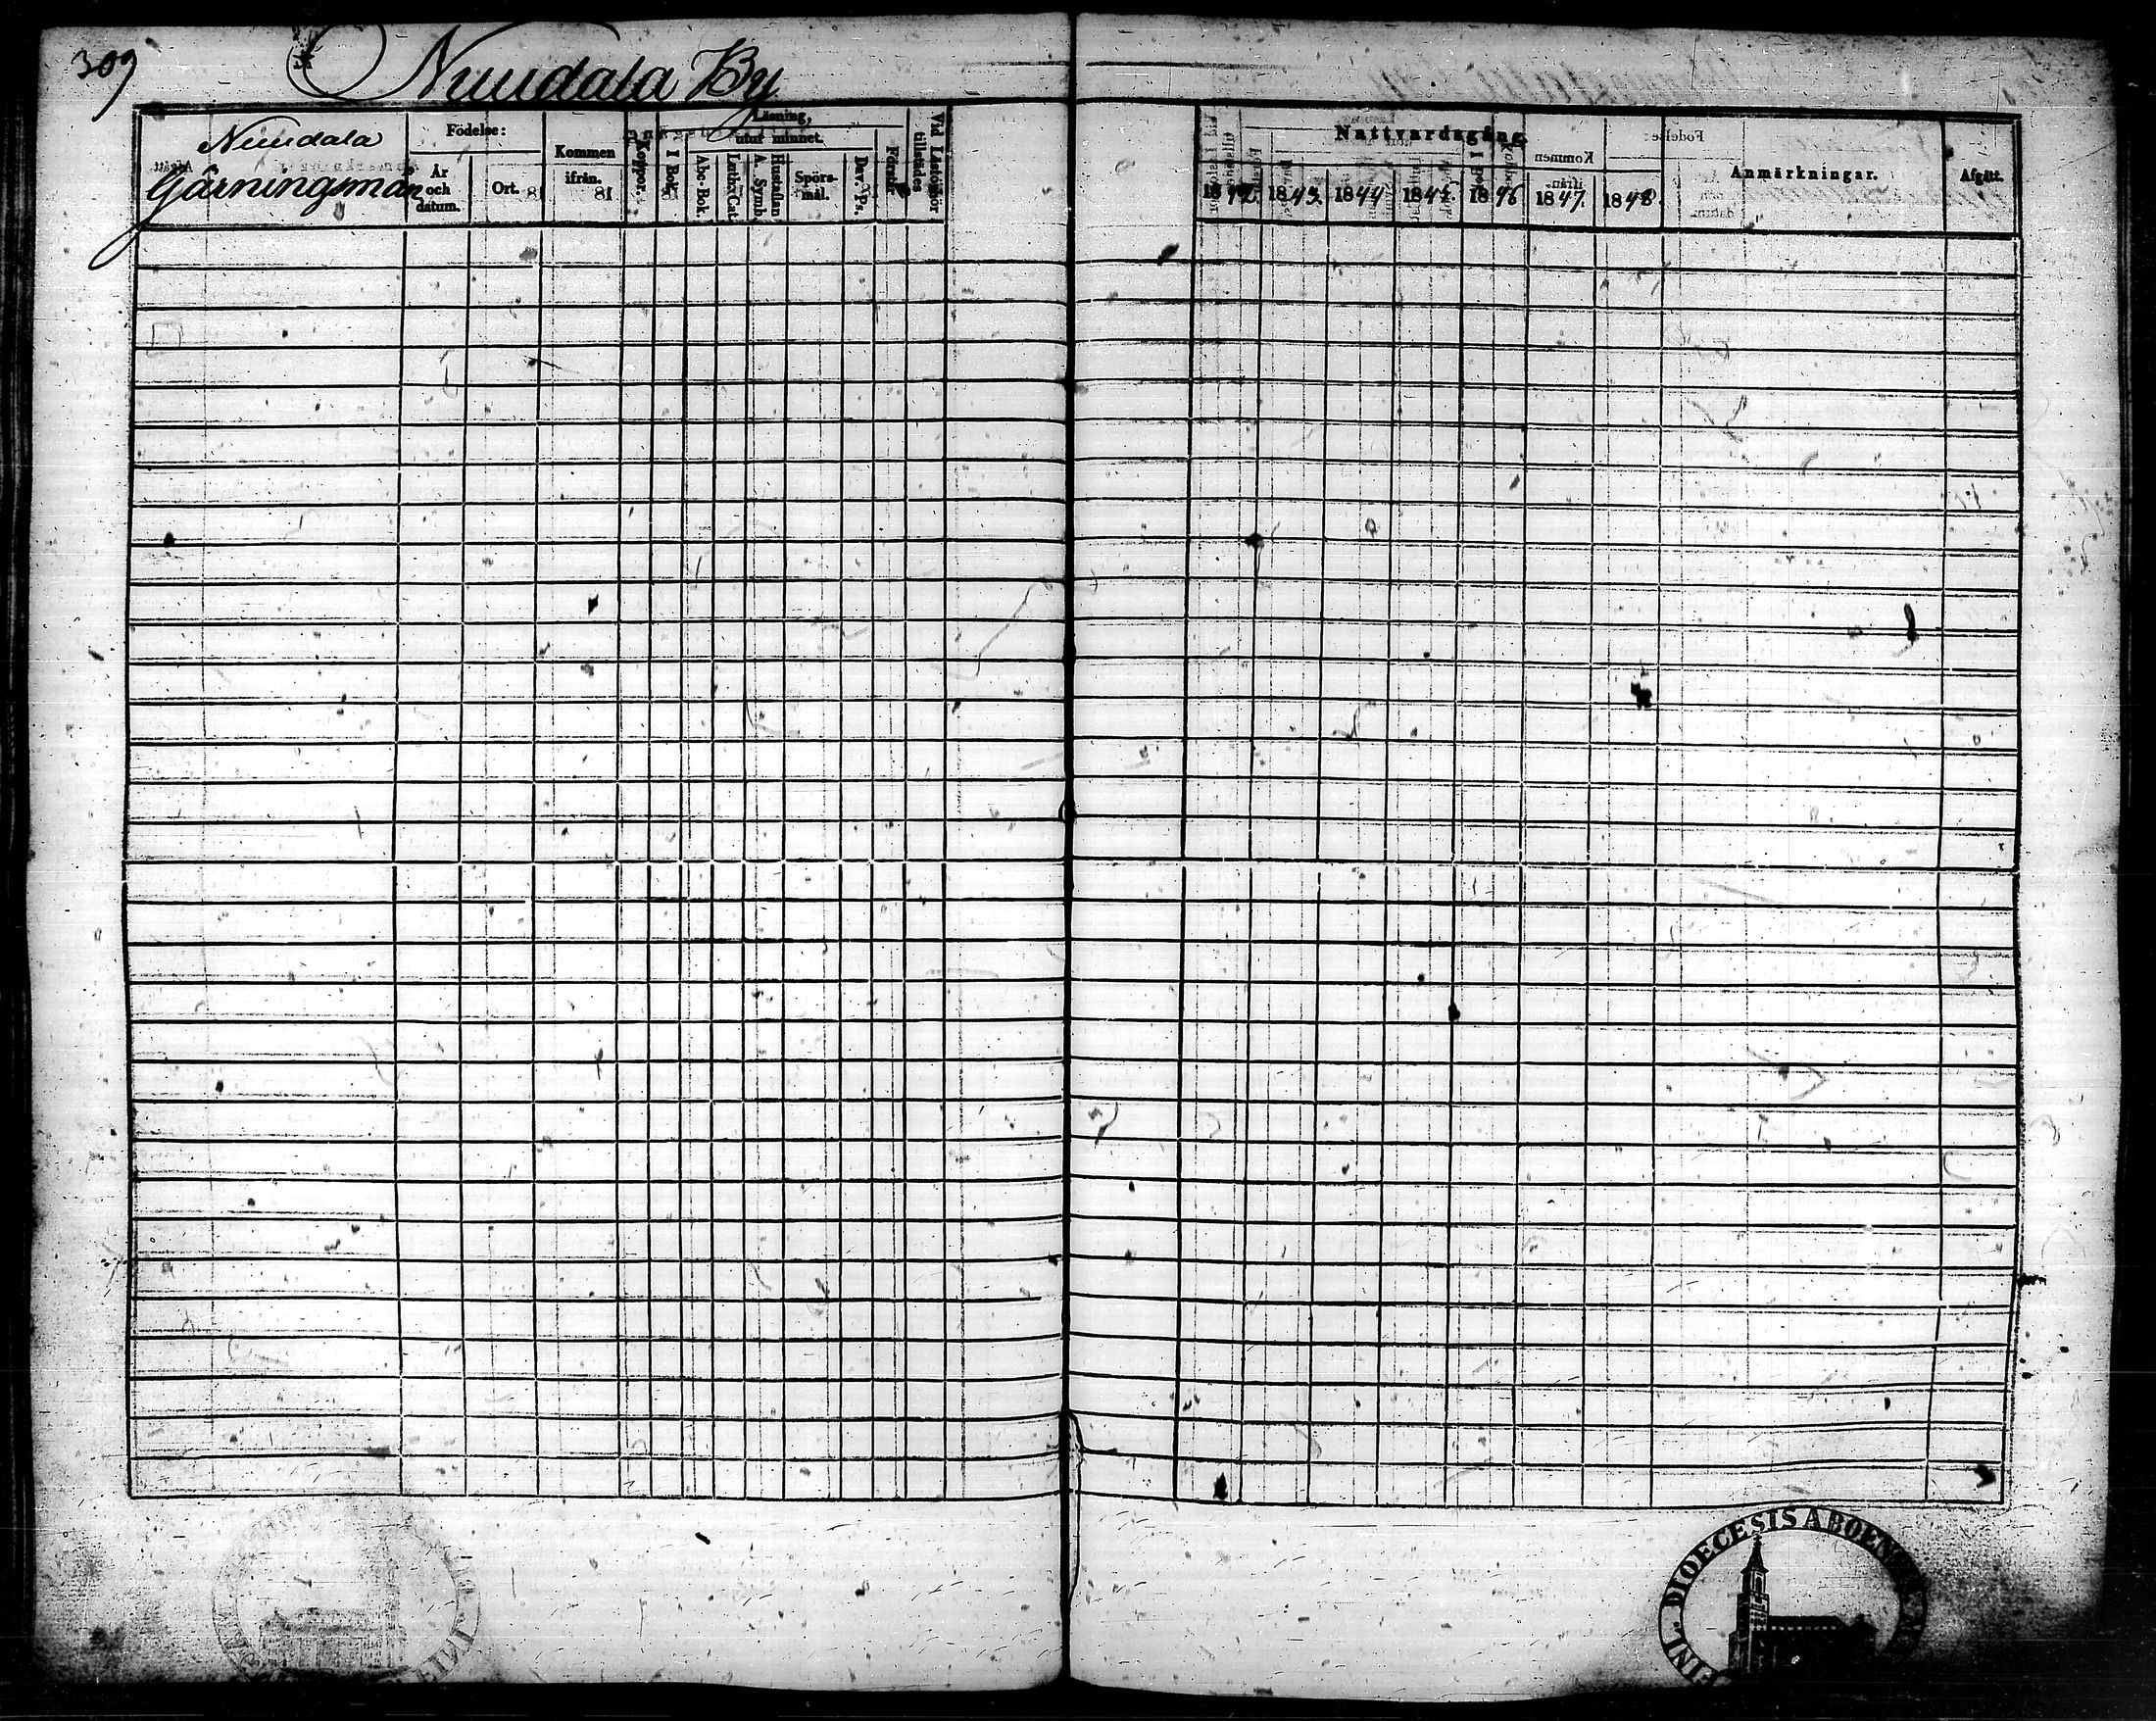 309
Nuudala By
Nuudala
Gärningsmän
Födelse:
År och datum.
Ort.
Kommen ifrån.
Koppor.
Läsning,
I Bok.
utur minnet.
Abc-Bok.
Luth. Cat.
A. Symb.
Hustaflan
Spörs-mål.
Dav. Ps.
Förstår
Vid Läseförhör tillstädes
Nattvardsgång
1842.
1843.
1844
1845.
1846
1847.
1848.
Anmärkningar.
Afgått.
DIOECESIS ABOENSIS
FINL.